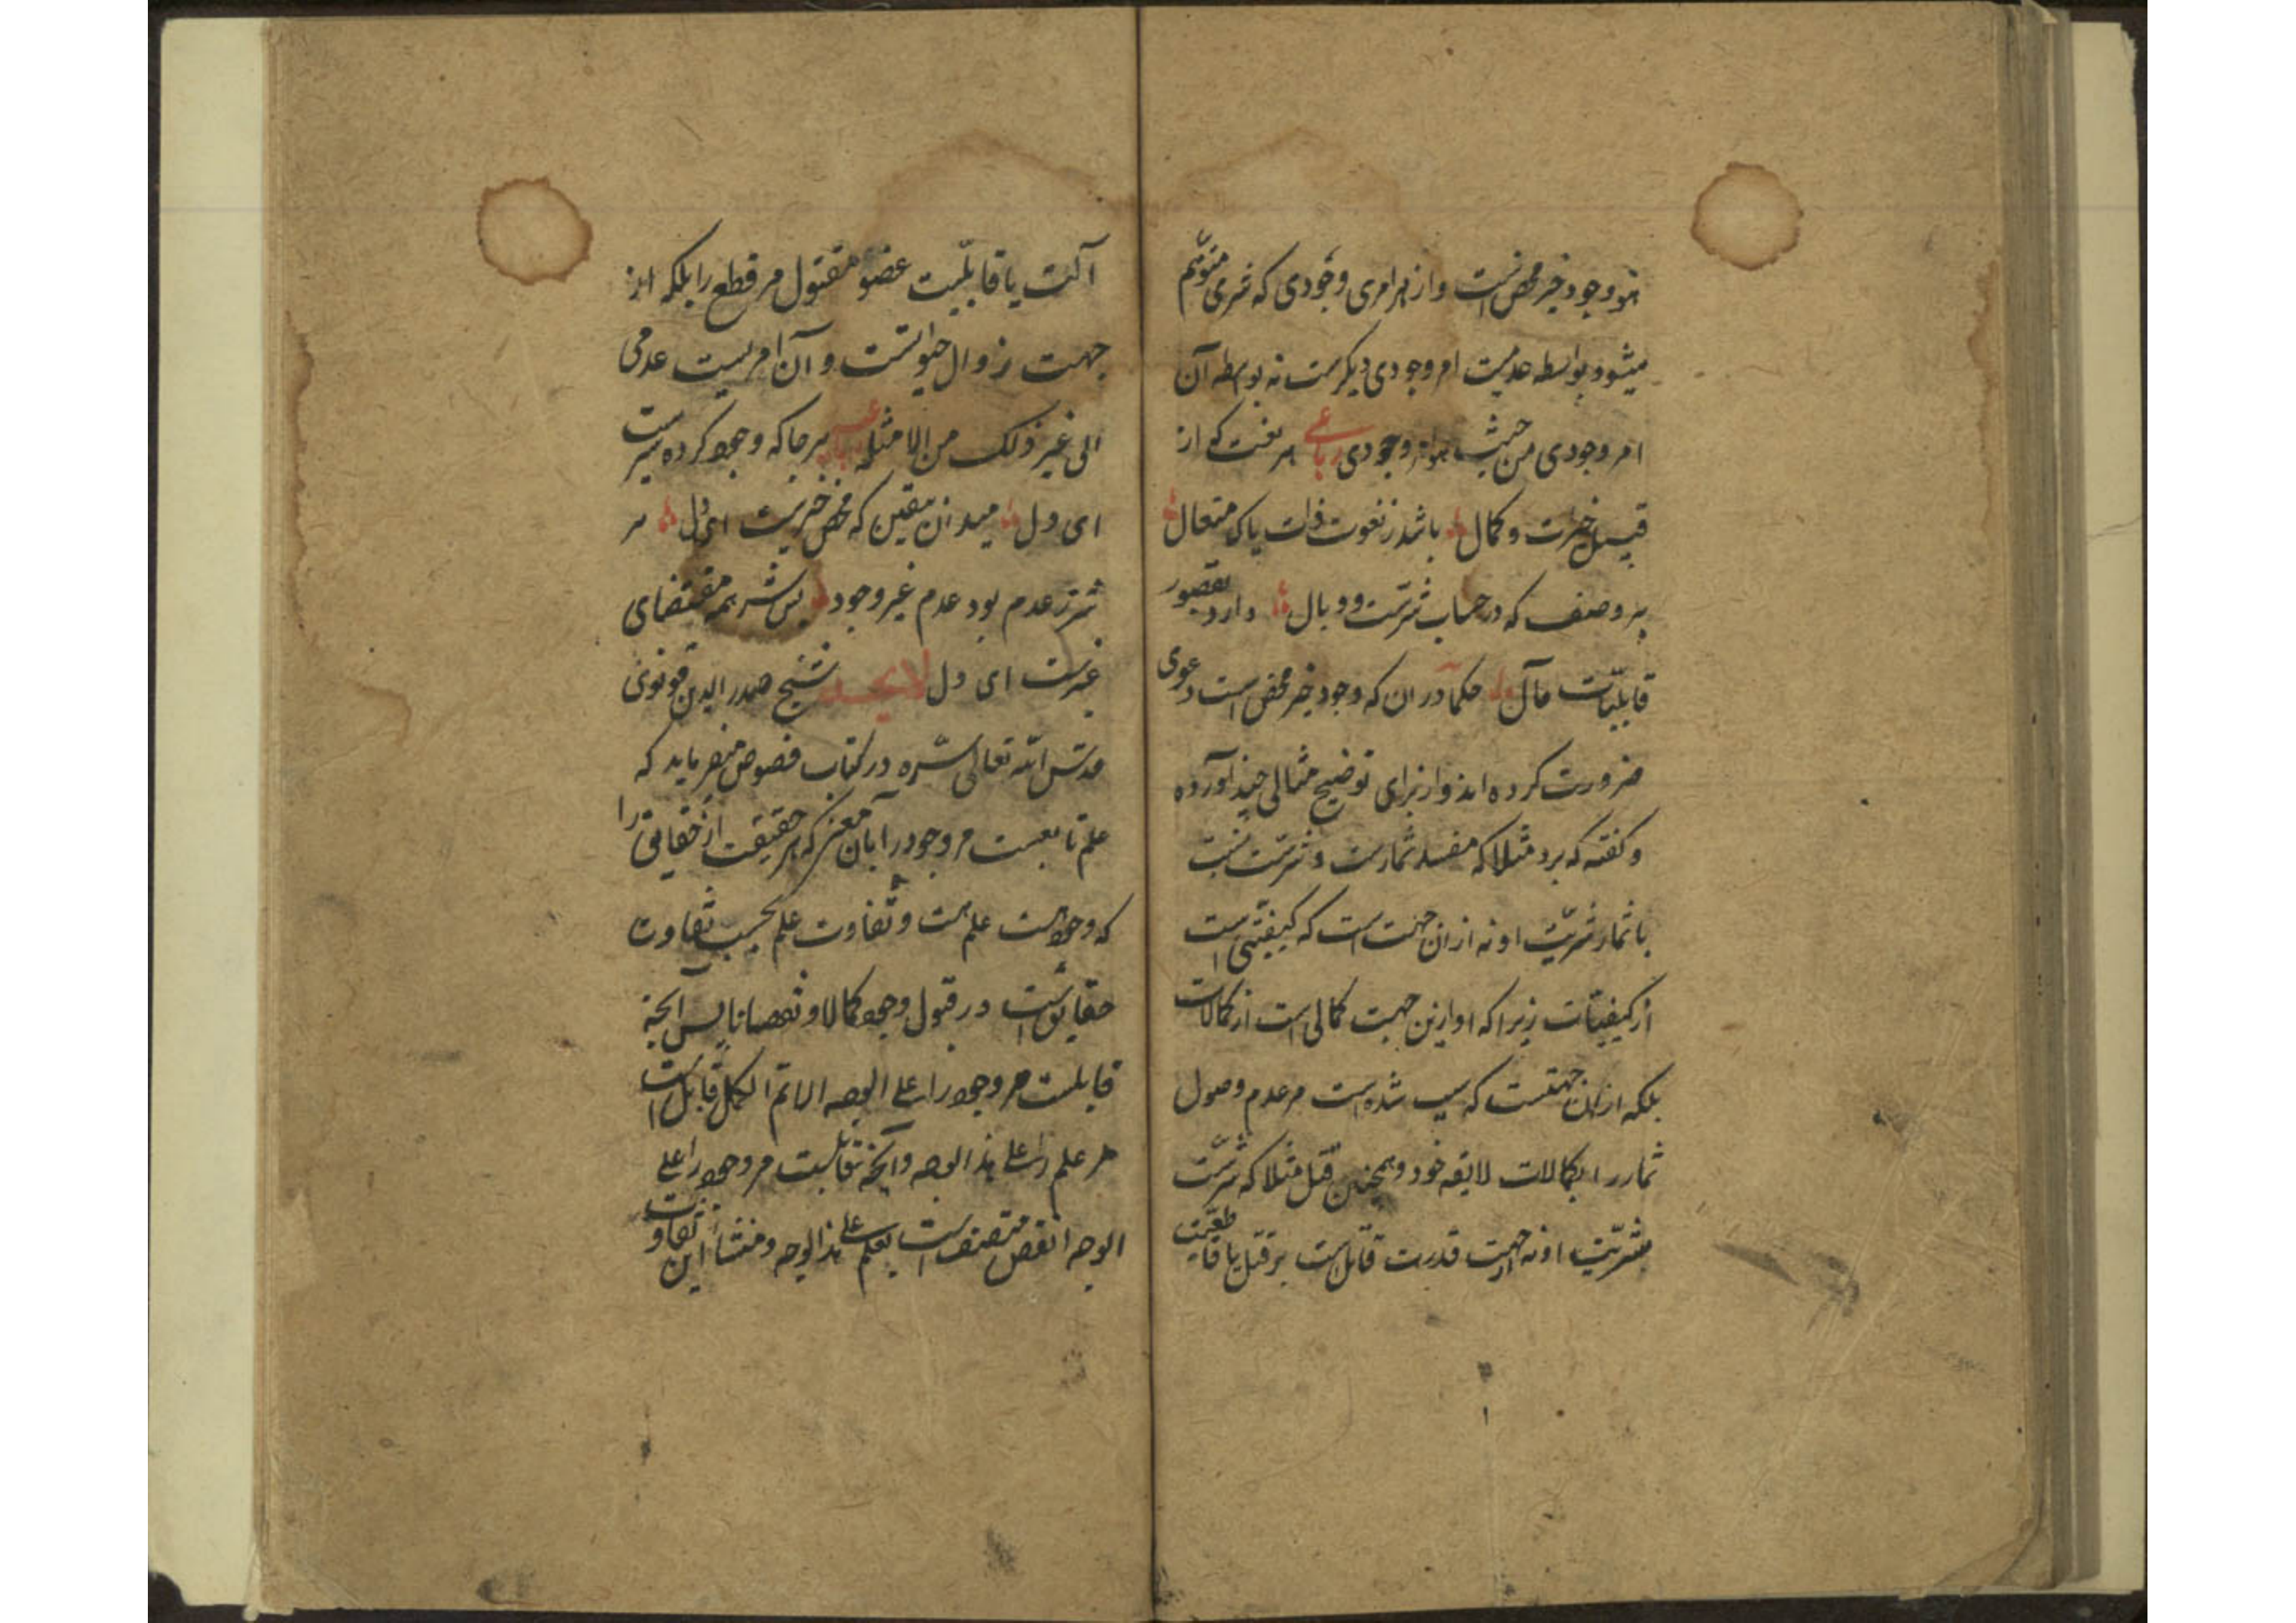 هو وجود خیر محض است و از هر امری وجودی که شری متوهم
میشود بواسطه عدمیت امر وجودی دیگرست نه بواسطه آن
امر وجودی من حیث هو امر وجودی رباعی هر نعت که از
قبیل خیرست و کمال باشد ز نعوت ذات پاک متعال
هر وصف که در حساب شرست و وبال دارد بقصور
قابلیات مآل حکما در آن که وجود خیر محض است دعوی
ضرورت کرده اند و از برای توضیح مثالی چند آورده
و گفته که برد مثلا که مفسد ثمارست و شرست نسبت
با ثمار شریت او نه از آن جهت است که کیفیتی است
از کیفیات زیرا که او ازین جهت کمالی است از کمالات
بلکه از آن جهتست که سبب شده است مر عدم وصول
ثمار را بکمالات لایقه خود و همچنین قتل مثلا که شرست
شریت او نه از جهت قدرت قاتل است بر قتل یا قاطعیت
آلت یا قابلیت عضو مقتول مر قطع را بلکه از
جهت زوال حیوتست و آن امریست عدمی
الی غیر ذلک من الامثله رباعیه هر جا که وجود کرده سیرست
ای دل میدان بیقین که محض خیرست ای دل هر
شر ز عدم بود عدم غیر وجود پس شر همه مقتضای
غیرست ای دل لایحه شیخ صدر الدین قونوی
قدس الله تعالی سره در کتاب فصوص میفرماید که
علم تابعست مر وجود را بآن معنی که هر حقیقت از حقایق را
که وجود هست علم هست و تفاوت علم بحسب تفاوت
حقایق است در قبول وجود کمالا و نقصانا پس آنچه
قابلست مر وجود را علی الوجه الاتم الاکمل قابل است
مر علم را علی هذا الوجه و آنچه قابلست مر وجود را علی
الوجه انقص متصف است بعلم علی هذا الوجه و منشأ این تفاوت